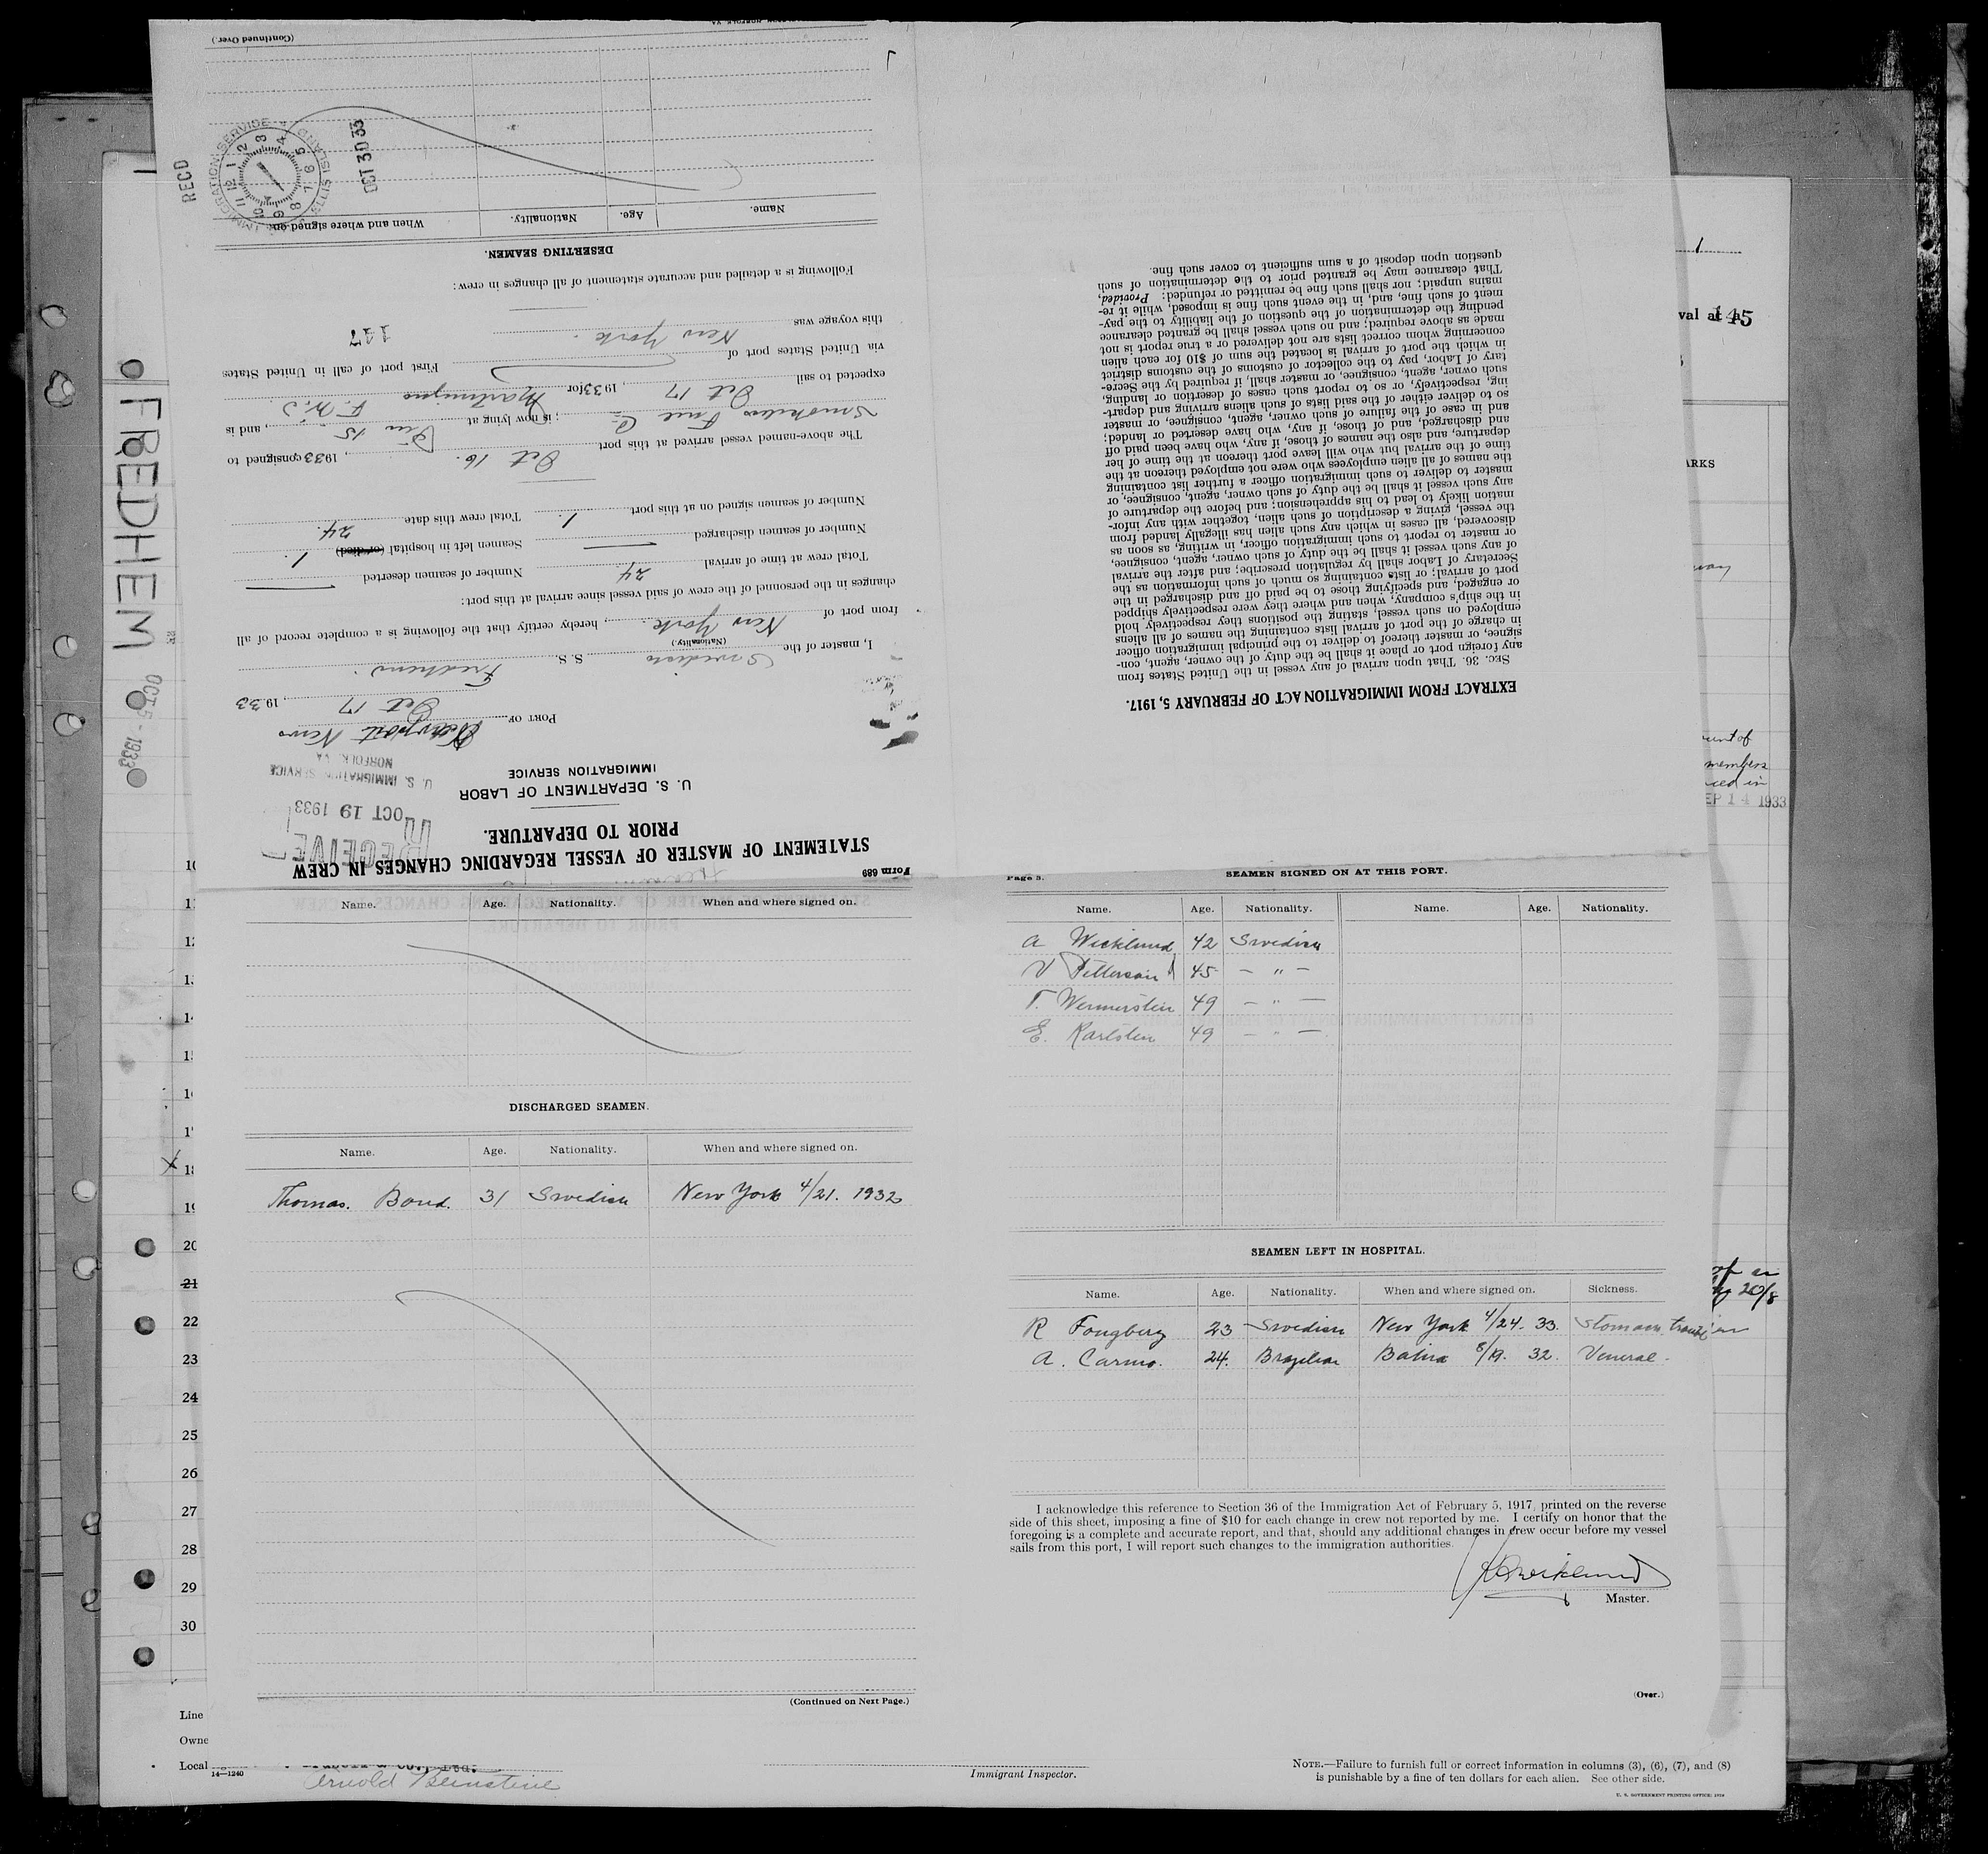 FREDHEM
OCT 5 - 1933
Form 689
STATEMENT OF MASTER OF VESSEL REGARDING CHANGES IN CREW
PRIOR TO DEPARTURE.
RECEIVED
OCT 19 1933
U. S. IMMIGRATION SERVICE
NORFOLK, VA.
U. S. DEPARTMENT OF LABOR
IMMIGRATION SERVICE
PORT OF Newport News
Oct 17, 1933
I, master of the Swedish S. S. Fredhem
(Nationality.)
from port of New York, hereby certify that the following is a complete record of all
changes in the personnel of the crew of said vessel since arrival at this port:
Total crew at time of arrival 24 Number of seamen deserted —
Number of seamen discharged — Seamen left in hospital (or died) 1.
Number of seamen signed on at this port 1. Total crew this date 24.
The above-named vessel arrived at this port Oct 16., 1933, consigned to
Smokeless Fuel Co; is now lying at Pier 15, and is
expected to sail Oct 17, 1933 for Martinique F. W. I.
via United States port of First port of call in United States
this voyage was New York. 147
Following is a detailed and accurate statement of all changes in crew:
DESERTING SEAMEN.
Name. Age. Nationality. When and where signed on.
RECD
IMMIGRATION SERVICE ELLIS ISLAND
12 1 2 3 4 5 6 7 8 9 10 11
OCT 30 33
(Continued Over.)
EXTRACT FROM IMMIGRATION ACT OF FEBRUARY 5, 1917.
SEC. 36. That upon arrival of any vessel in the United States from
any foreign port or place it shall be the duty of the owner, agent, con-
signee, or master thereof to deliver to the principal immigration officer
in charge of the port of arrival lists containing the names of all aliens
employed on such vessel, stating the positions they respectively hold
in the ship's company, when and where they were respectively shipped
or engaged, and specifying those to be paid off and discharged in the
port of arrival; or lists containing so much of such information as the
Secretary of Labor shall by regulation prescribe; and after the arrival
of any such vessel it shall be the duty of such owner, agent, consignee,
or master to report to such immigration officer, in writing, as soon as
discovered, all cases in which any such alien has illegally landed from
the vessel, giving a description of such alien, together with any infor-
mation likely to lead to his apprehension; and before the departure of
any such vessel it shall be the duty of such owner, agent, consignee, or
master to deliver to such immigration officer a further list containing
the names of all alien employees who were not employed thereon at the
time of the arrival but who will leave port thereon at the time of her
departure, and also the names of those, if any, who have been paid off
and discharged, and of those, if any, who have deserted or landed;
and in case of the failure of such owner, agent, consignee, or master
so to deliver either of the said lists of such aliens arriving and depart-
ing, respectively, or so to report such cases of desertion or landing,
such owner, agent, consignee, or master shall, if required by the Secre-
tary of Labor, pay to the collector of customs of the customs district
in which the port of arrival is located the sum of $10 for each alien
concerning whom correct lists are not delivered or a true report is not
made as above required; and no such vessel shall be granted clearance
pending the determination of the question of the liability to the pay-
ment of such fine, and, in the event such fine is imposed, while it re-
mains unpaid; nor shall such fine be remitted or refunded: Provided,
That clearance may be granted prior to the determination of such
question upon deposit of a sum sufficient to cover such fine.
Name. Age. Nationality. When and where signed on.
DISCHARGED SEAMEN.
Name. Age. Nationality. When and where signed on.
Thomas. Bond. 31 Swedish New York 4/21. 1932
(Continued on Next Page.)
Page 3.
SEAMEN SIGNED ON AT THIS PORT.
Name. Age. Nationality. Name. Age. Nationality.
A Wicklund 42 Swedish
V Petterson 45 — " —
T. Wennersten 49 — " —
E. Karlsten 49 — " —
SEAMEN LEFT IN HOSPITAL.
Name. Age. Nationality. When and where signed on. Sickness.
R Fougberg 23 Swedish New York 4/24. 33. Stomach
A. Carmo. 24. Brazilian Bahia 8/19. 32. Veneral.
I acknowledge this reference to Section 36 of the Immigration Act of February 5, 1917, printed on the reverse
side of this sheet, imposing a fine of $10 for each change in crew not reported by me. I certify on honor that the
foregoing is a complete and accurate report, and that, should any additional changes in crew occur before my vessel
sails from this port, I will report such changes to the immigration authorities.
Master.
(Over.)
19
20
21
22
23
24
25
26
27
28
29
30
Line
Owne
Local
14—1240
Arnold Bernsteine
Immigrant Inspector.
NOTE.—Failure to furnish full or correct information in columns (3), (6), (7), and (8)
is punishable by a fine of ten dollars for each alien. See other side.
U. S. GOVERNMENT PRINTING OFFICE
1
val at a
145
ARKS
members
EP 14 1933
20/8